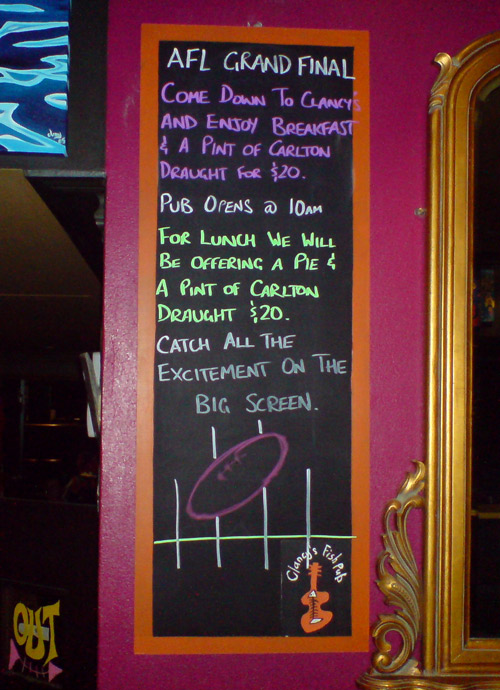 AFL GRAND FINAL
COME DOWN TO CLANCY'S
AND ENJOY BREAKFAST
& A PINT OF CARLTON
DRAUGHT FOR $20.
PUB OPENS @ 10AM
FOR LUNCH WE WILL
BE OFFERING A PIE &
A PINT OF CARLTON
DRAUGHT $20.
CATCH ALL THE
EXCITEMENT ON THE
BIG SCREEN.
Clancy's Fish Pub
OUT